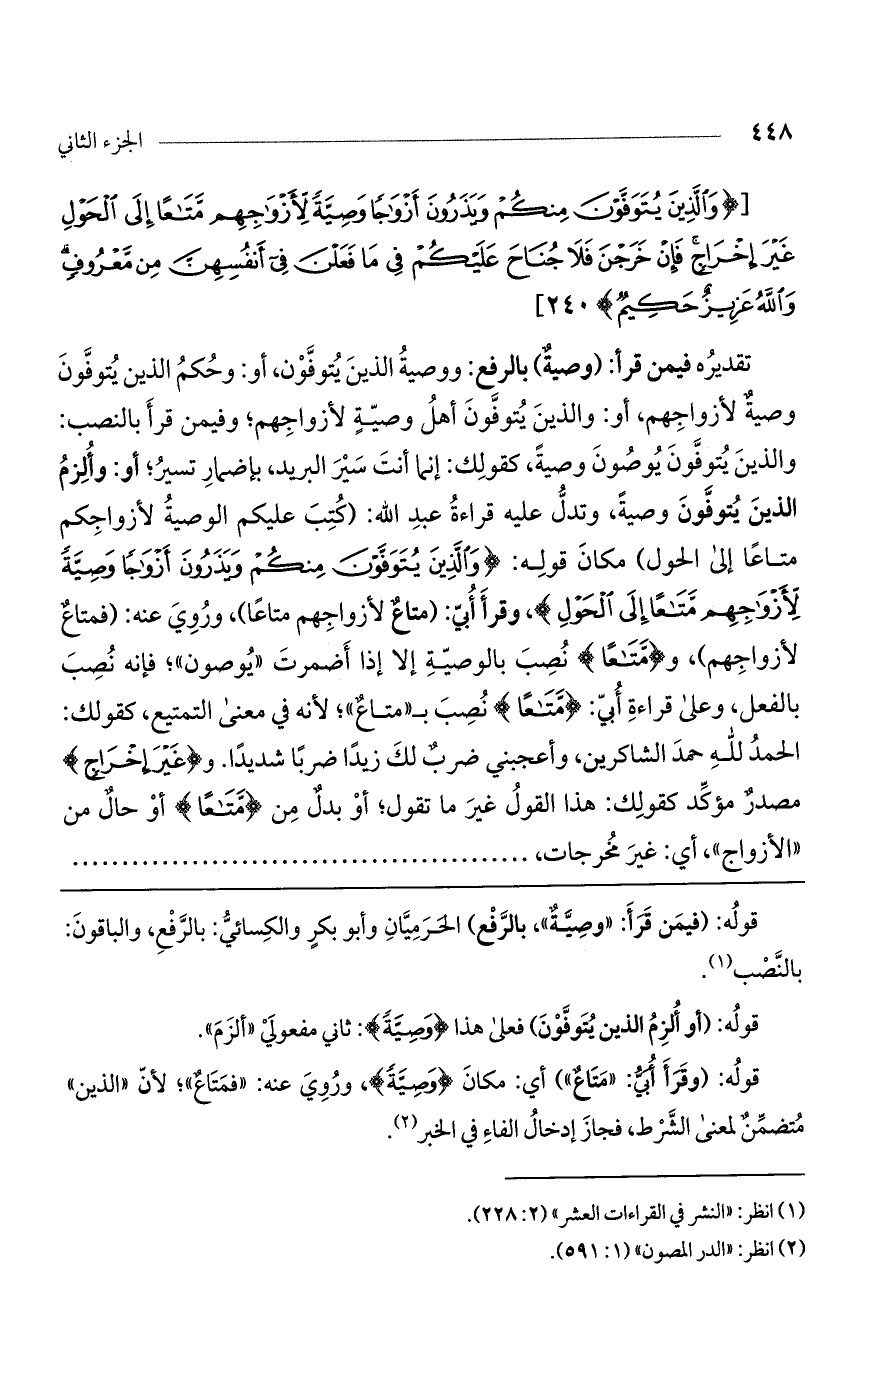 ٤٤٨ الجزء الثاني
[﴿وَٱلَّذِينَ يُتَوَفَّوْنَ مِنكُمْ وَيَذَرُونَ أَزْوَٰجًا وَصِيَّةً لِّأَزْوَٰجِهِم مَّتَـٰعًا إِلَى ٱلْحَوْلِ
غَيْرَ إِخْرَاجٍ ۚ فَإِنْ خَرَجْنَ فَلَا جُنَاحَ عَلَيْكُمْ فِى مَا فَعَلْنَ فِىٓ أَنفُسِهِنَّ مِن مَّعْرُوفٍ ۗ
وَٱللَّهُ عَزِيزٌ حَكِيمٌ﴾ ٢٤٠]
تقديرُه فيمن قرأ: (وصيةٌ) بالرفع: ووصيةُ الذينَ يُتوفَّوْن، أو: وحُكمُ الذين يُتوفَّونَ
وصيةٌ لأزواجِهم، أو: والذينَ يُتوفَّونَ أهلُ وصيّةٍ لأزواجِهم؛ وفيمن قرأَ بالنصب:
والذينَ يُتوفَّونَ يُوصُونَ وصيةً، كقولِك: إنما أنتَ سَيْرَ البريد، بإضمارِ تسيرُ؛ أو: وأُلزِمُ
الذينَ يُتوفَّونَ وصيةً، وتدلُّ عليه قراءةُ عبدِ الله: (كُتِبَ عليكم الوصيةُ لأزواجِكم
متاعًا إلىٰ الحول) مكانَ قولِه: ﴿وَٱلَّذِينَ يُتَوَفَّوْنَ مِنكُمْ وَيَذَرُونَ أَزْوَٰجًا وَصِيَّةً
لِّأَزْوَٰجِهِم مَّتَـٰعًا إِلَى ٱلْحَوْلِ﴾، وقرأَ أُبيّ: (متاعٌ لأزواجِهم متاعًا)، ورُوِيَ عنه: (فمتاعٌ
لأزواجِهم)، و﴿مَّتَـٰعًا﴾ نُصِبَ بالوصيّةِ إلا إذا أَضمرتَ «يُوصون»؛ فإنه نُصِبَ
بالفعل، وعلىٰ قراءةِ أُبيّ: ﴿مَّتَـٰعًا﴾ نُصِبَ بـ«متاعٌ»؛ لأنه في معنىٰ التمتيع، كقولك:
الحمدُ للَّهِ حمدَ الشاكرين، وأعجبني ضربٌ لكَ زيدًا ضربًا شديدًا. و﴿غَيْرَ إِخْرَاجٍ﴾
مصدرٌ مؤكِّد كقولِك: هذا القولُ غيرَ ما تقول؛ أوْ بدلٌ مِن ﴿مَّتَـٰعًا﴾ أوْ حالٌ من
«الأزواج»، أي: غيرَ مُخرجات، ...............................................
قولُه: (فيمَن قَرَأَ: «وصِيَّةٌ»، بالرَّفْع) الحَرَمِيَّانِ وأبو بكرٍ والكِسائيُّ: بالرَّفْعِ، والباقونَ:
بالنَّصْب(١).
قولُه: (أو أُلزِمُ الذين يُتَوفَّوْنَ) فعلىٰ هذا ﴿وَصِيَّةً﴾: ثاني مفعولَيْ «ألزَمَ».
قولُه: (وقَرَأَ أُبيٌّ: «مَتَاعٌ») أي: مكانَ ﴿وَصِيَّةً﴾، ورُوِيَ عنه: «فمَتَاعٌ»؛ لأنّ «الذين»
مُتضمِّنٌ لمعنىٰ الشَّرْط، فجازَ إدخالُ الفاءِ في الخبر(٢).
(١) انظر: «النشر في القراءات العشر» (٢: ٢٢٨).
(٢) انظر: «الدر المصون» (١: ٥٩١).